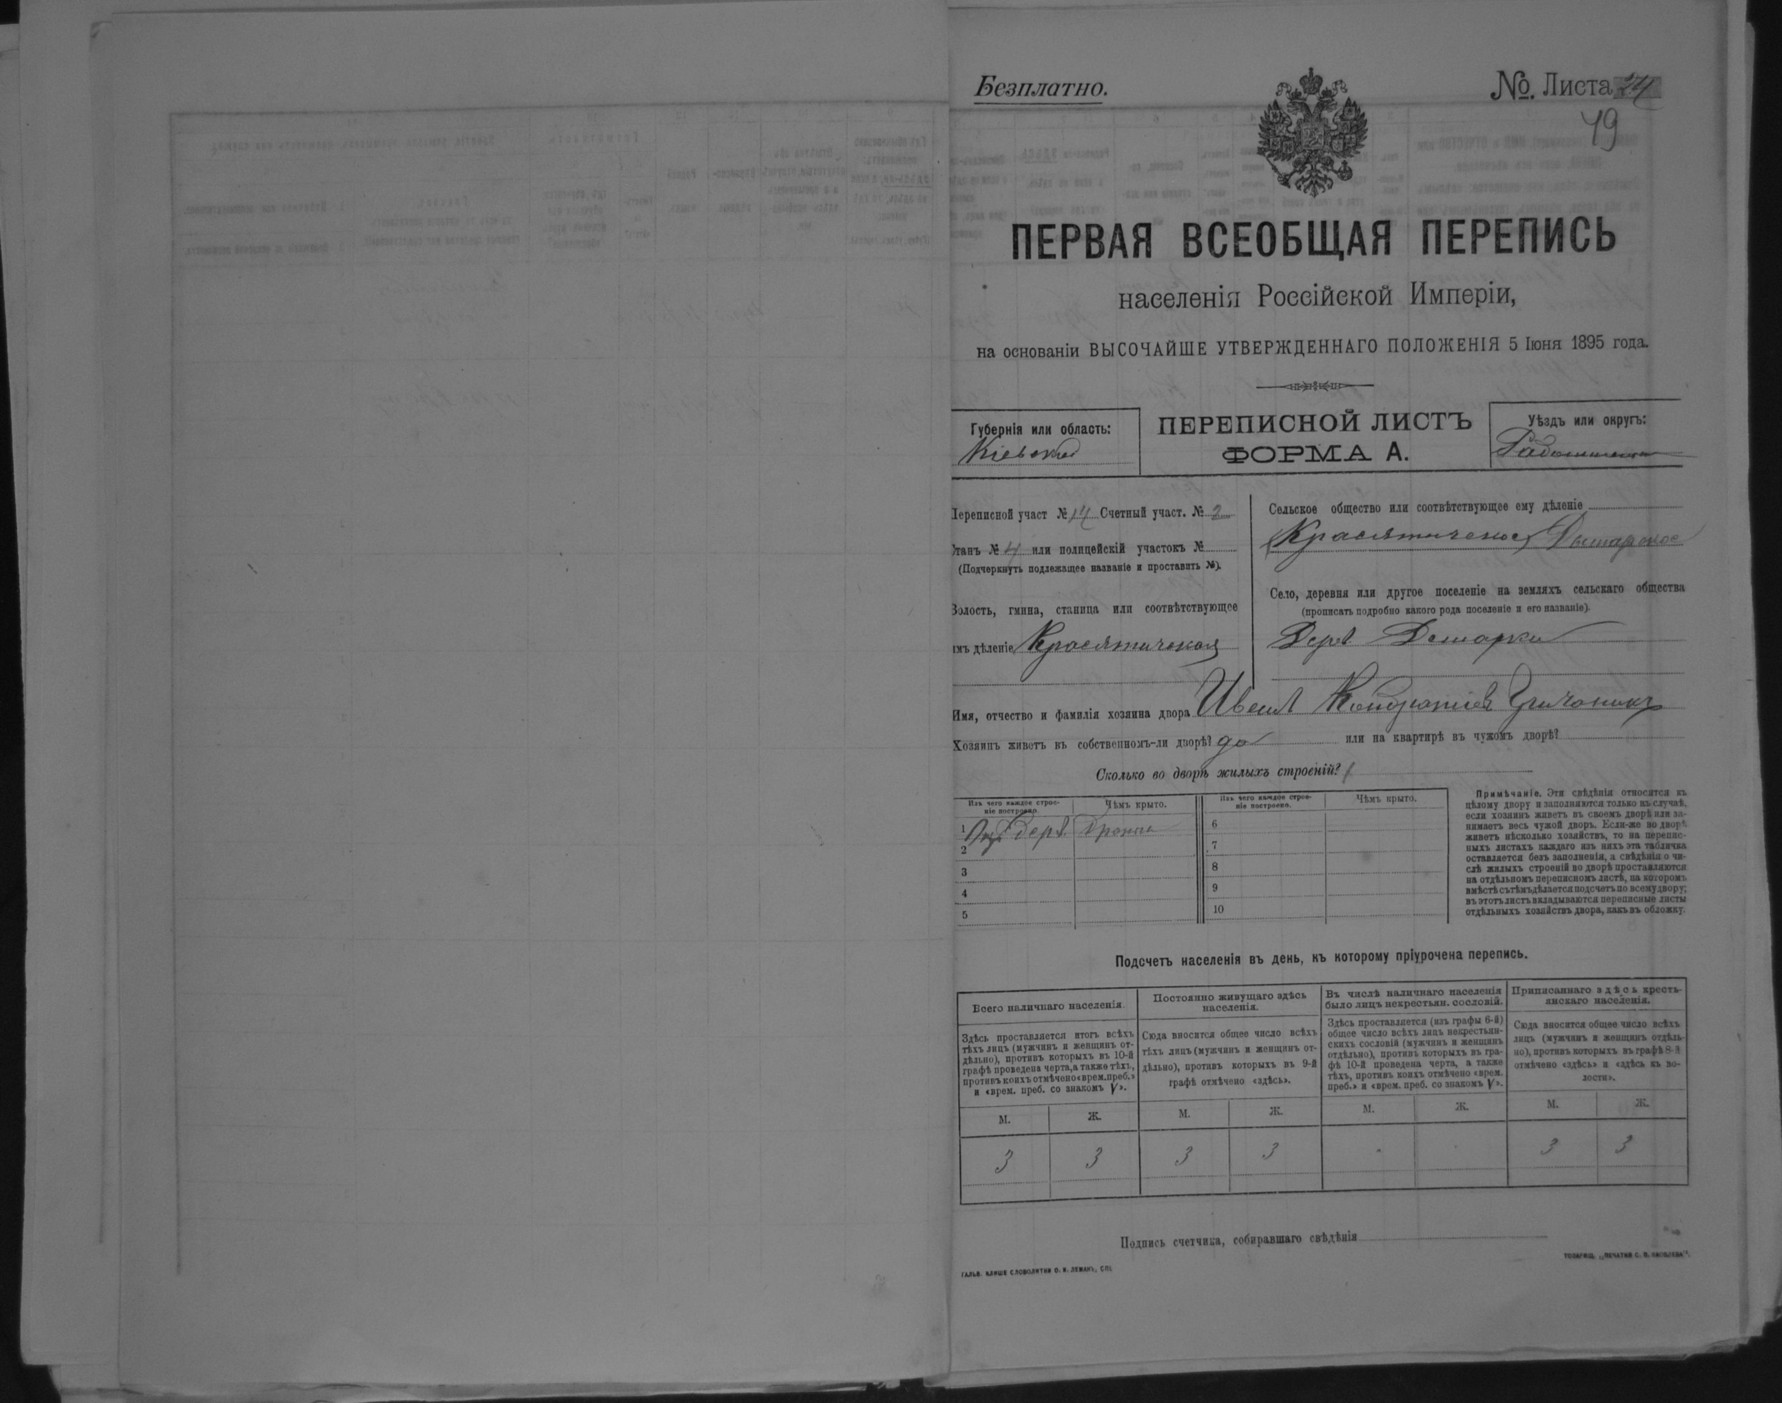 Безплатно.
№. Листа 24
49
ПЕРВАЯ ВСЕОБЩАЯ ПЕРЕПИСЬ
населенія Россійской Имперіи,
на основаніи ВЫСОЧАЙШЕ УТВЕРЖДЕННАГО ПОЛОЖЕНІЯ 5 Іюня 1895 года.
Губернія или область:
Кіевская
ПЕРЕПИСНОЙ ЛИСТЪ
ФОРМА А.
Уѣздъ или округъ:
Переписной участ № 14 Счетный участ. № 2
Станъ № 4 или полицейскій участокъ №
(Подчеркнуть подлежащее названіе и проставить №).
Волость, гмина, станица или соотвѣтствующее
имъ дѣленіе Красятичская
Сельское общество или соотвѣтствующее ему дѣленіе
Село, деревня или другое поселеніе на земляхъ сельскаго общества
(прописать подробно какого рода поселеніе и его названіе).
Дер.
Имя, отчество и фамилія хозяина двора
Хозяинъ живетъ въ собственномъ-ли дворѣ? да или на квартирѣ въ чужомъ дворѣ?
Сколько во дворѣ жилыхъ строеній? 1
Изъ чего каждое строе-
ніе построено.
Чѣмъ крыто.
Изъ чего каждое строе-
ніе построено.
Чѣмъ крыто.
1 Изъ дерв.
2
3
4
5
6
7
8
9
10
Примѣчаніе. Эти свѣдѣнія относятся къ
цѣлому двору и заполняются только въ случаѣ,
если хозяинъ живетъ въ своемъ дворѣ или за-
нимаетъ весь чужой дворъ. Если-же во дворѣ
живетъ нѣсколько хозяйствъ, то на перепис-
ныхъ листахъ каждаго изъ нихъ эта табличка
оставляется безъ заполненія, а свѣдѣнія о чи-
слѣ жилыхъ строеній во дворѣ проставляются
на отдѣльномъ переписномъ листѣ, на которомъ
вмѣстѣ съ тѣмъ дѣлается подсчетъ по всему двору;
въ этотъ листъ вкладываются переписные листы
отдѣльныхъ хозяйствъ двора, какъ въ обложку.
Подсчетъ населенія въ день, къ которому пріурочена перепись.
Всего наличнаго населенія.
Здѣсь проставляется итогъ всѣхъ
тѣхъ лицъ (мужчинъ и женщинъ от-
дѣльно), противъ которыхъ въ 10-й
графѣ проведена черта, а также тѣхъ,
противъ коихъ отмѣчено «врем. преб.»
и «врем. преб. со знакомъ V».
М.
Ж.
3
3
Постоянно живущаго здѣсь
населенія.
Сюда вносится общее число всѣхъ
тѣхъ лицъ (мужчинъ и женщинъ от-
дѣльно), противъ которыхъ въ 9-й
графѣ отмѣчено «здѣсь».
М.
Ж.
3
3
Въ числѣ наличнаго населенія
было лицъ некрестьян. сословій.
Здѣсь проставляется (изъ графы 6-й)
общее число всѣхъ лицъ некрестьян-
скихъ сословій (мужчинъ и женщинъ
отдѣльно), противъ которыхъ въ гра-
фѣ 10-й проведена черта, а также
тѣхъ, противъ коихъ отмѣчено «врем.
преб.» и «врем. преб. со знакомъ V».
М.
Ж.
Приписаннаго здѣсь кресть-
янскаго населенія.
Сюда вносится общее число всѣхъ
лицъ (мужчинъ и женщинъ отдѣль-
но), противъ которыхъ въ графѣ 8-й
отмѣчено «здѣсь» и «здѣсь къ во-
лости».
М.
Ж.
3
3
Подпись счетчика, собиравшаго свѣдѣнія
ГАЛЬВ. КЛИШЕ СЛОВОЛИТНИ О. И. ЛЕМАНЪ, СПБ.
ТОВАРИЩ. „ПЕЧАТНЯ С. П. ЯКОВЛЕВА".